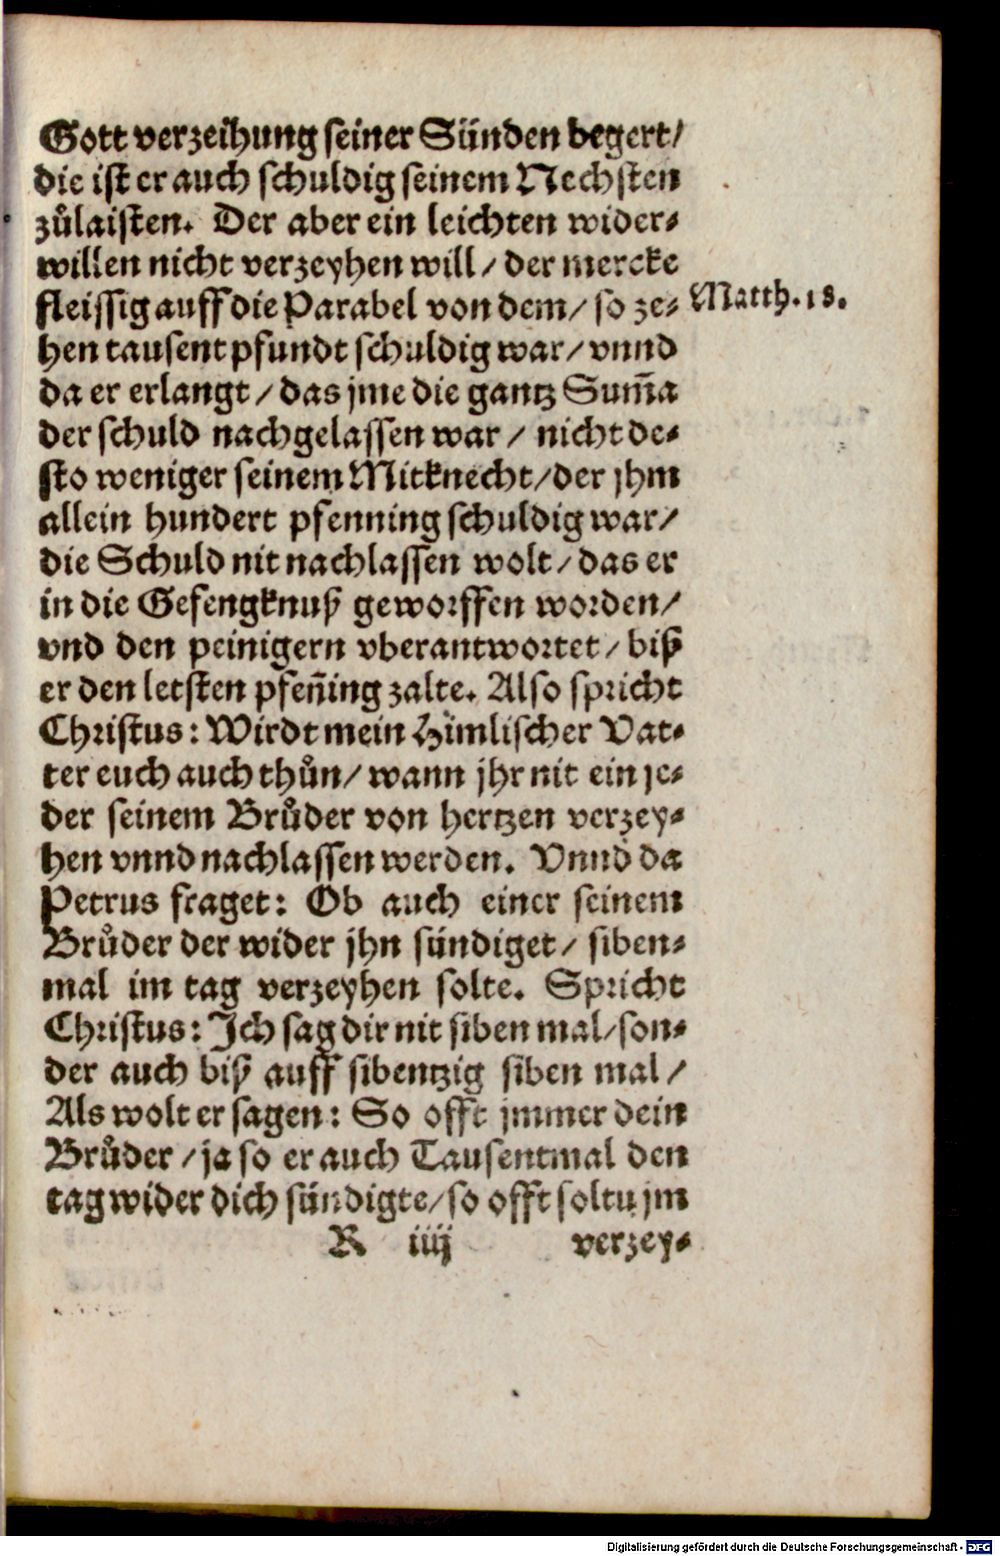 Gott verzeihung seiner Sünden begert/
die ist er auch schuldig seinem Nechsten
zůlaisten. Der aber ein leichten wider-
willen nicht verzeyhen will/ der mercke
fleissig auff die Parabel von dem/ so ze-
Matth. 18.
hen tausent pfundt schuldig war/ vnnd
da er erlangt/ das jme die gantz Sum̃a
der schuld nachgelassen war/ nicht de-
sto weniger seinem Mitknecht/ der jhm
allein hundert pfenning schuldig war/
die Schuld nit nachlassen wolt/ das er
in die Gefengknuß geworffen worden/
vnd den peinigern vberantwortet/ biß
er den letsten pfen̄ing zalte. Also spricht
Christus: Wirdt mein Him̄lischer Vat-
ter euch auch thůn/ wann jhr nit ein je-
der seinem Brůder von hertzen verzey-
hen vnnd nachlassen werden. Vnnd da
Petrus fraget: Ob auch einer seinem
Brůder der wider jhn sündiget/ siben-
mal im tag verzeyhen solte. Spricht
Christus: Ich sag dir nit siben mal/ son-
der auch biß auff sibentzig siben mal/
Als wolt er sagen: So offt jmmer dein
Brůder/ ja so er auch Tausentmal den
tag wider dich sündigte/ so offt soltu jm
R iiij verzey-
Digitalisierung gefördert durch die Deutsche Forschungsgemeinschaft - DFG